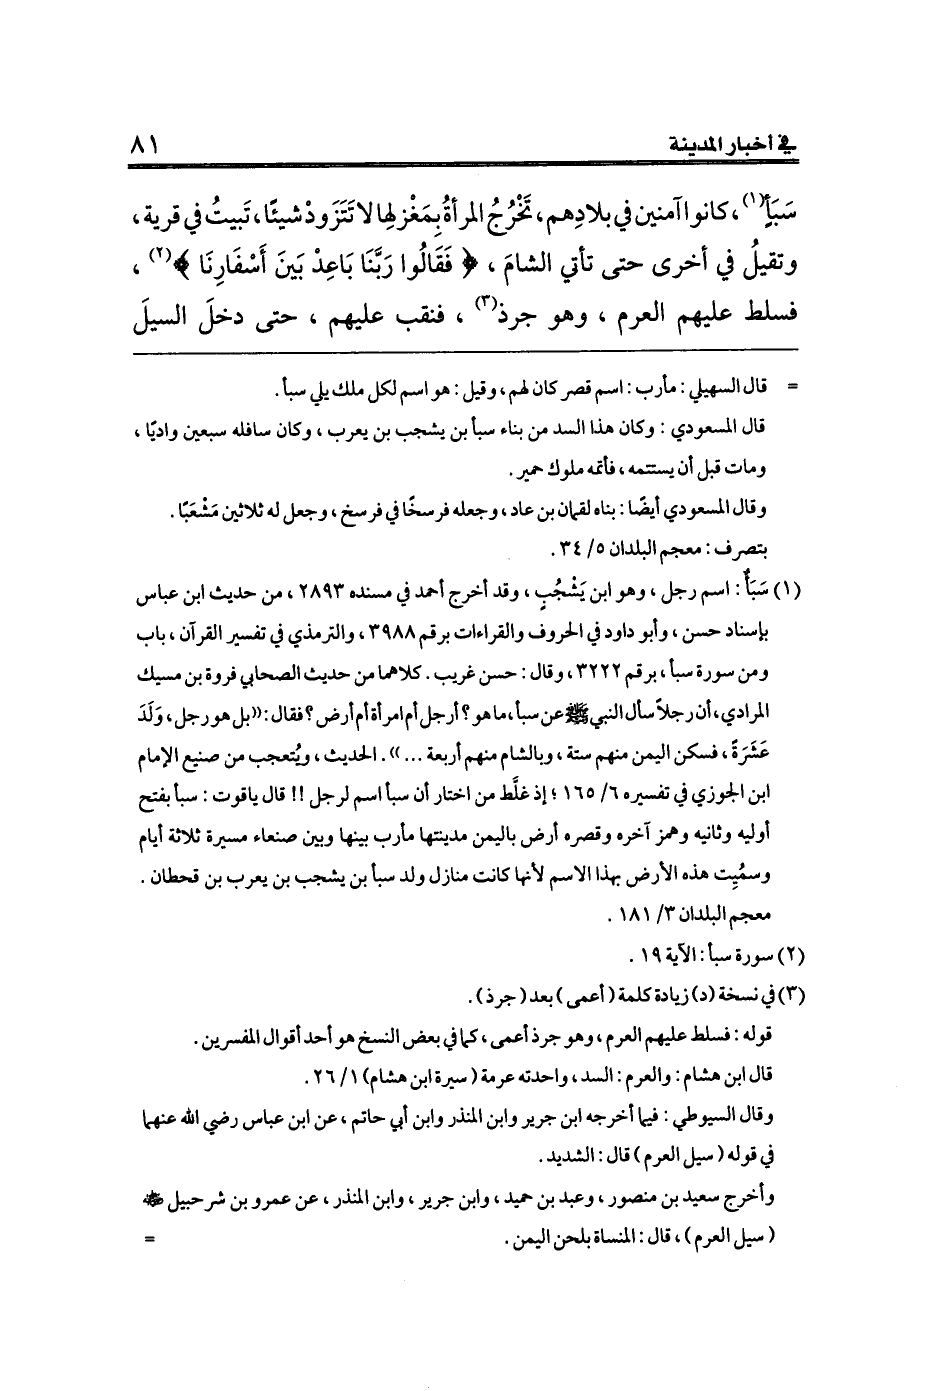 في أخبار المدينة ٨١
سَبَأٍ(١)، كانوا آمنين في بلادِهم، تَخْرُجُ المرأةُ بِمَغْزلِها لا تَتَزَودْ شيئًا، تَبيتُ في قرية،
وتقيلُ في أخرى حتى تأتي الشامَ ، ﴿ فَقَالُوا رَبَّنَا بَاعِدْ بَيْنَ أَسْفَارِنَا ﴾(٢) ،
فسلط عليهم العرم ، وهو جرذ(٣) ، فنقب عليهم ، حتى دخلَ السيلَ
= قال السهيلي : مأرب : اسم قصر كان لهم ، وقيل : هو اسم لكل ملك يلي سبأ .
قال المسعودي : وكان هذا السد من بناء سبأ بن يشجب بن يعرب ، وكان سافله سبعين واديًا ،
ومات قبل أن يستتمه ، فأتمه ملوك حمير .
وقال المسعودي أيضًا : بناه لقمان بن عاد ، وجعله فرسخًا في فرسخ ، وجعل له ثلاثين مَشْعَبًا .
بتصرف : معجم البلدان ٥/ ٣٤ .
(١) سَبَأٌ : اسم رجل ، وهو ابن يَشْجُبٍ ، وقد أخرج أحمد في مسنده ٢٨٩٣ ، من حديث ابن عباس
بإسناد حسن ، وأبو داود في الحروف والقراءات برقم ٣٩٨٨ ، والترمذي في تفسير القرآن ، باب
ومن سورة سبأ ، برقم ٣٢٢٢ ، وقال : حسن غريب . كلاهما من حديث الصحابي فروة بن مسيك
المرادي، أن رجلاً سأل النبي ﷺ عن سبأ، ما هو؟ أرجل أم امرأة أم أرض؟ فقال: «بل هو رجل، وَلَدَ
عَشَرَةً ، فسكن اليمن منهم ستة ، وبالشام منهم أربعة ... » . الحديث ، ويُتعجب من صنيع الإمام
ابن الجوزي في تفسيره ٦/ ١٦٥ ؛ إذ غلَّط من اختار أن سبأ اسم لرجل !! قال ياقوت : سبأ بفتح
أوليه وثانيه وهمز آخره وقصره أرض باليمن مدينتها مأرب بينها وبين صنعاء مسيرة ثلاثة أيام
وسمُيِت هذه الأرض بهذا الاسم لأنها كانت منازل ولد سبأ بن يشجب بن يعرب بن قحطان .
معجم البلدان ٣/ ١٨١ .
(٢) سورة سبأ : الآية ١٩ .
(٣) في نسخة (د) زيادة كلمة ( أعمى ) بعد ( جرذ ) .
قوله : فسلط عليهم العرم ، وهو جرذ أعمى ، كما في بعض النسخ هو أحد أقوال المفسرين .
قال ابن هشام : والعرم : السد ، واحدته عرمة ( سيرة ابن هشام ) ١/ ٢٦ .
وقال السيوطي : فيما أخرجه ابن جرير وابن المنذر وابن أبي حاتم ، عن ابن عباس رضي الله عنهما
في قوله ( سيل العرم ) قال : الشديد .
وأخرج سعيد بن منصور ، وعبد بن حميد ، وابن جرير ، وابن المنذر ، عن عمرو بن شرحبيل
( سيل العرم ) ، قال : المنساة بلحن اليمن . =